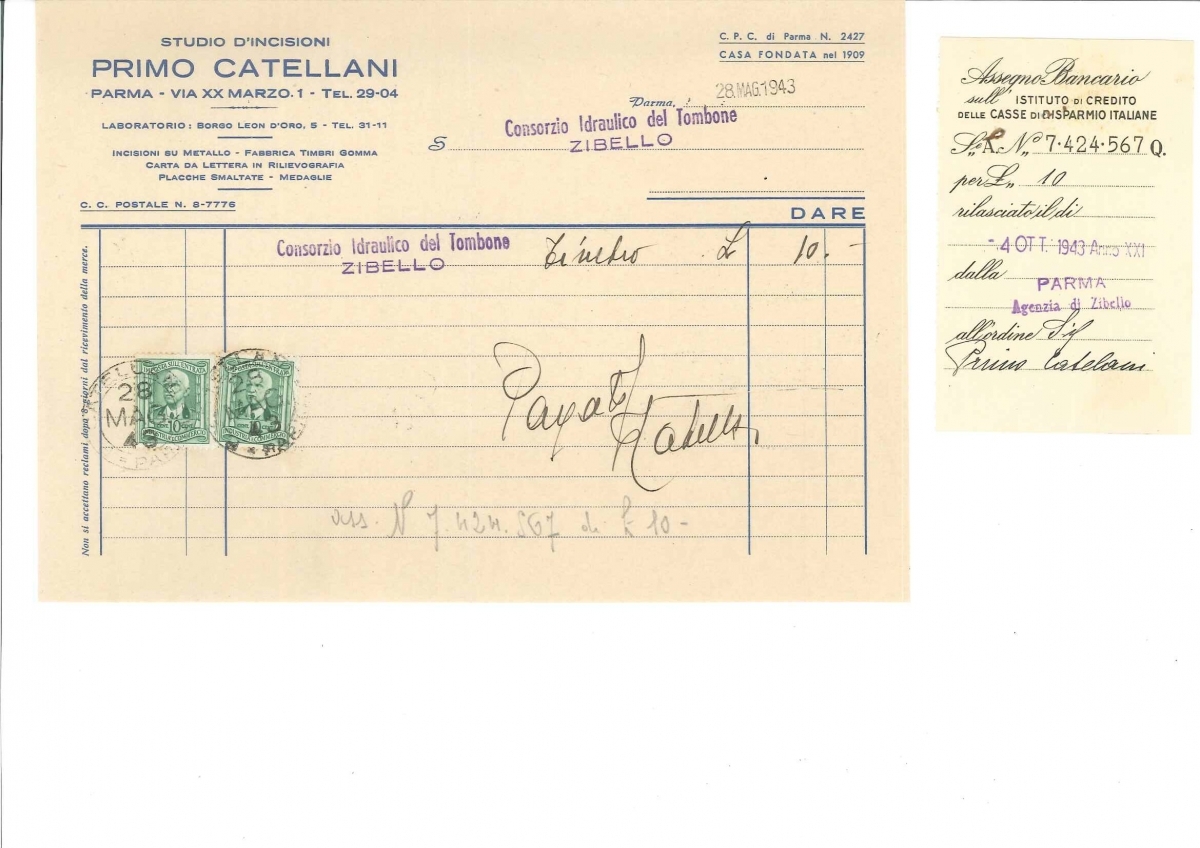 STUDIO D'INCISIONI
PRIMO CATELLANI
PARMA - VIA XX MARZO. 1 - TEL. 29-04
LABORATORIO : BORGO LEON D'ORO, 5 - TEL. 31-11
INCISIONI SU METALLO - FABBRICA TIMBRI GOMMA
CARTA DA LETTERA IN RILIEVOGRAFIA
PLACCHE SMALTATE - MEDAGLIE
C. C. POSTALE N. 8-7776
C. P. C. di Parma N. 2427
CASA FONDATA nel 1909
Parma, 28. MAG. 1943
S Consorzio Idraulico del Tombone
ZIBELLO
DARE
Consorzio Idraulico del Tombone
ZIBELLO
Timbro £ 10.-
Non si accettano reclami dopo 8 giorni dal ricevimento della merce.
28
MAG
43
10
28
MAG
43
Pagato
Catellani
ass. N 7.424.567 da £ 10-
Assegno Bancario
sull' ISTITUTO DI CREDITO
DELLE CASSE DI RISPARMIO ITALIANE
N° 7·424·567 Q.
per £ 10
rilasciato il di
- 4 OTT. 1943 Anno XXI
dalla PARMA
Agenzia di Zibello
all'ordine Sig
Primo Catelani